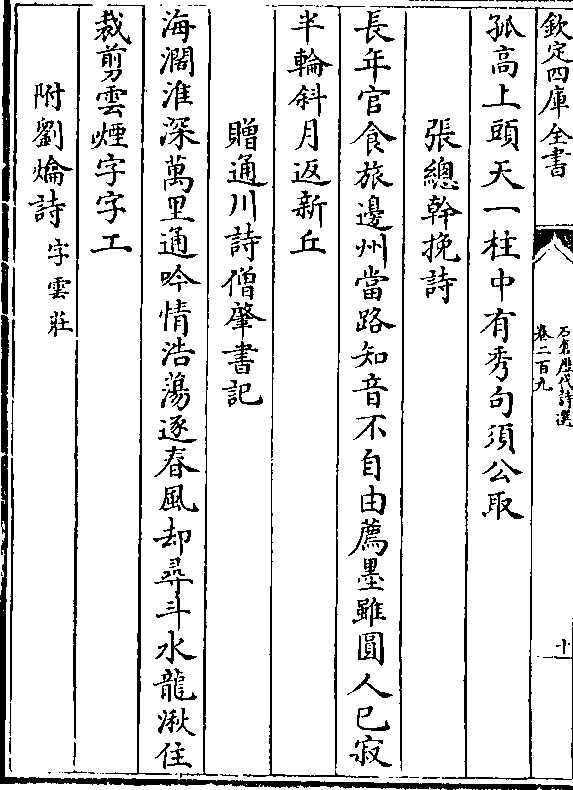 欽定四庫全書
石倉歷代詩選
卷二百九
十
孤高上頭天一柱中有秀句須公取
張總幹挽詩
長年官食旅邊州當路知音不自由薦墨雖圓人已寂
半輪斜月返新丘
贈通川詩僧肇書記
海濶淮深萬里通吟情浩蕩逐春風却尋斗水龍湫住
裁剪雲煙字字工
附劉爚詩字雲莊